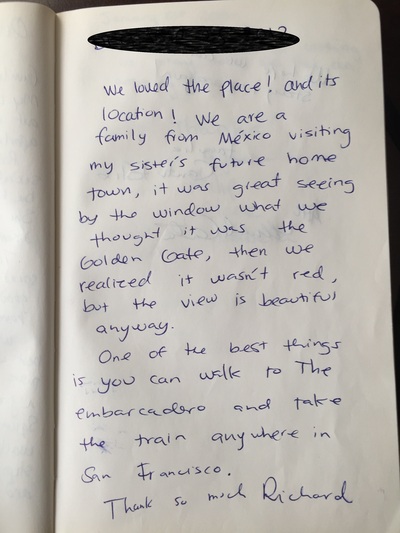 We loved the place! and its
location! We are a
family from México visiting
my sister's future home
town, it was great seeing
by the window what we
thought it was the
Golden Gate, then we
realized it wasn't red,
but the view is beautiful
anyway.
One of the best things
is you can walk to The
embarcadero and take
the train anywhere in
San Francisco.
Thank so much Richard